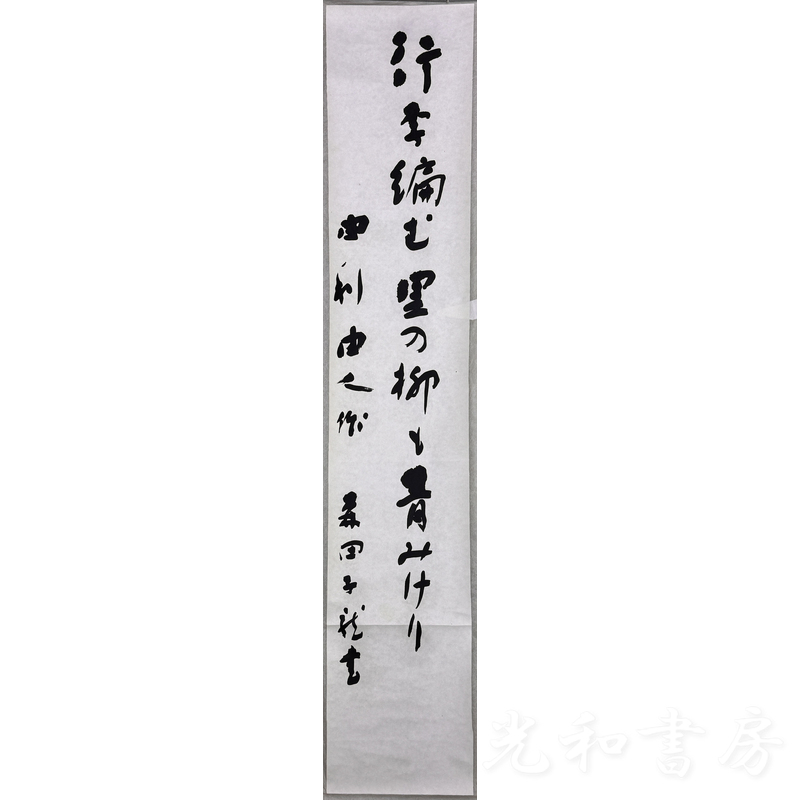 行李編む里の柳も青みけり
由利由人作 森田子龍書
光和書房